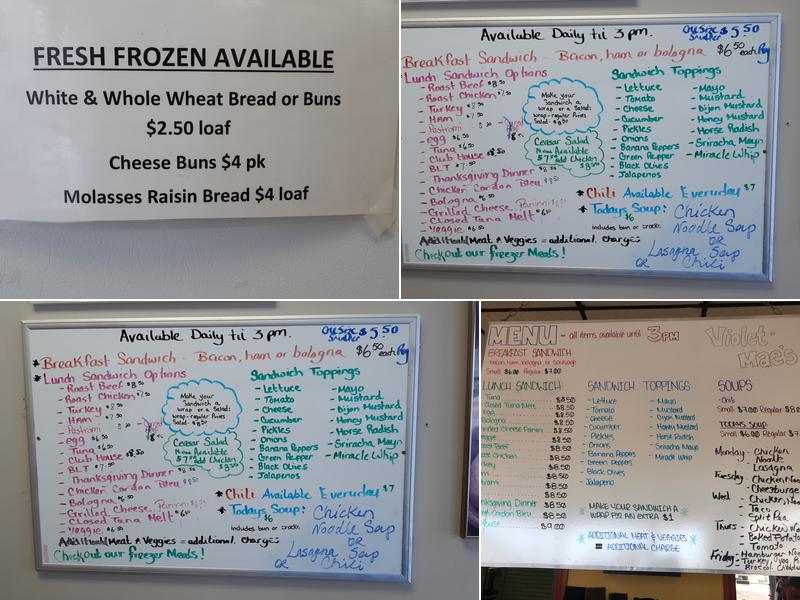 FRESH FROZEN AVAILABLE
White & Whole Wheat Bread or Buns
$2.50 loaf
Cheese Buns $4 pk
Molasses Raisin Bread $4 loaf
Available Daily til 3 pm.
One Size Smaller $5.50
Breakfast Sandwich - Bacon, ham or bologna $6.50 each
Lunch Sandwich Options
- Roast Beef $8.50
- Roast Chicken $7.50
- Turkey $7.50
- Ham $7.50
- Pastrami
- egg $6.50
- Tuna $6.50
- Club House $8.50
- BLT $7.50
- Thanksgiving Dinner
- Chicken Cordon Bleu
- Bologna $6.50
- Grilled Cheese Panini
- Closed Tuna Melt
- Veggie
Make your Sandwich a wrap or a Salad:
wrap - regular Prices
Salad:
Ceasar Salad
Now Available
Add Chicken
Sandwich Toppings
- Lettuce
- Tomato
- Cheese
- Cucumber
- Pickles
- Onions
- Banana Peppers
- Green Pepper
- Black Olives
- Jalapenos
- Mayo
- Mustard
- Dijon Mustard
- Honey Mustard
- Horse Radish
- Sriracha Mayo
- Miracle Whip
* Chili Available Everyday $7
* Todays Soup: $6
includes bun or crackr.
Chicken
Noodle Soup
OR
Lasagna Soup
OR Chili
Additional Meat & Veggies = additional Charges
Check out our freezer Meals!
Available Daily til 3 pm.
One Size Smaller $5.50
* Breakfast Sandwich - Bacon, ham or bologna $6.50 each
* Lunch Sandwich Options
- Roast Beef $8.50
- Roast Chicken $7.50
- Turkey $7.50
- Ham $7.50
- Pastrami
- egg $6.50
- Tuna $6.50
- Club House $8.50
- BLT $7.50
- Thanksgiving Dinner
- Chicken Cordon Bleu
- Bologna $6.50
- Grilled Cheese Panini
- Closed Tuna Melt
- Veggie
Make your Sandwich a wrap or a Salad:
wrap - regular Prices
Salad:
Ceasar Salad
Now Available
Add Chicken
Sandwich Toppings
- Lettuce
- Tomato
- Cheese
- Cucumber
- Pickles
- Onions
- Banana Peppers
- Green Pepper
- Black Olives
- Jalapenos
- Mayo
- Mustard
- Dijon Mustard
- Honey Mustard
- Horse Radish
- Sriracha Mayo
- Miracle Whip
* Chili Available Everyday $7
* Todays Soup: $6
includes bun or crackr.
Chicken
Noodle Soup
OR
Lasagna Soup
OR Chili
Additional Meat & Veggies = additional Charges
Check out our freezer Meals!
MENU - all items available until 3PM
Violet-Mae's
BREAKFAST SANDWICH
- bacon, ham, bologna, or sausage
Small $6.00 Regular $7.00
LUNCH SANDWICH
Tuna $8.50
Closed Tuna Melt $8.50
Egg $8.50
Bologna $8.50
Grilled Cheese Panini $8.50
$8.50
Beef $8.50
Chicken $8.50
$8.50
$8.50
$8.50
$8.50
Dinner $8.50
Cordon Bleu $8.50
House $9.00
SANDWICH TOPPINGS
- Lettuce
- Tomato
- Cheese
- Cucumber
- Pickles
- Onions
- Banana Peppers
- Green Peppers
- Black Olives
- Jalapeno
- Mayo
- Mustard
- Dijon Mustard
- Honey Mustard
- Horse Radish
- Sriracha Mayo
- Miracle Whip
* MAKE YOUR SANDWICH A WRAP FOR AN EXTRA $1 *
* ADDITIONAL MEAT & VEGGIES = ADDITIONAL CHARGE *
SOUPS
- Chili
Small $7.00 Regular
TODAYS SOUP
Small $6.00 Regular
Monday - Chicken Noodle
- Lasagna
Tuesday - Chicken
- Cheeseburger
Wed - Chicken
- Taco
- Split Pea
Thurs - Chicken
- Baked Potato
- Tomato
Friday - Hamburger
- Turkey